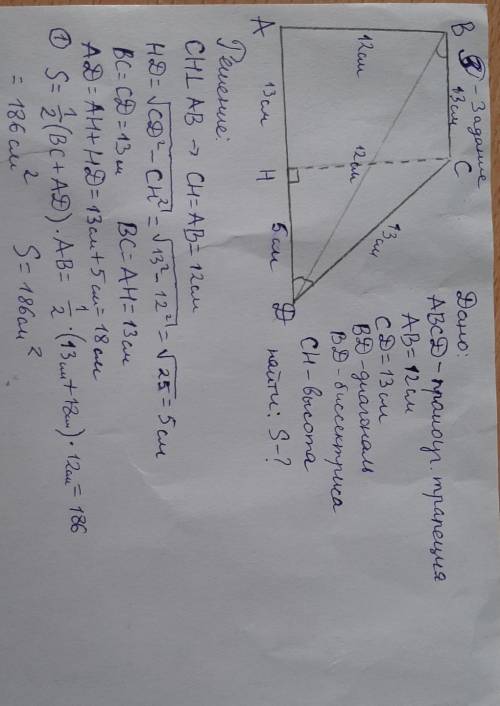 ⑦ - Задание
B
13см
C
12см
12см
13см
A
13см
H
5см
D
Дано:
ABCD - прямоуг. трапеция
AB = 12см
CD = 13см
BD - диагональ
BD - биссектриса
CH - высота
найти: S - ?
Решение:
CH⊥AB → CH = AB = 12см
HD = √CD² - CH² = √13² - 12² = √25 = 5см
BC = CD = 13см BC = AH = 13см
AD = AH + HD = 13см + 5см = 18см
① S = 1/2 (BC + AD) · AB = 1/2 · (13см + 18см) · 12см = 186
= 186см² S = 186см²